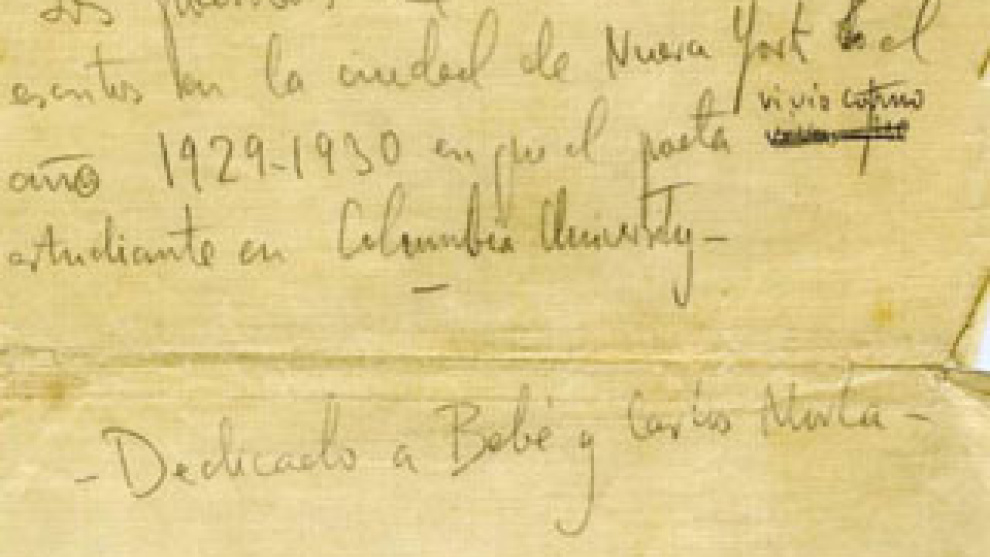 Los poemas
escritos en la ciudad de Nueva York el
año 1929-1930 en que el poeta vivio como
estudiante en Columbia University-
-Dedicado a Bebé y Carlos Morla-